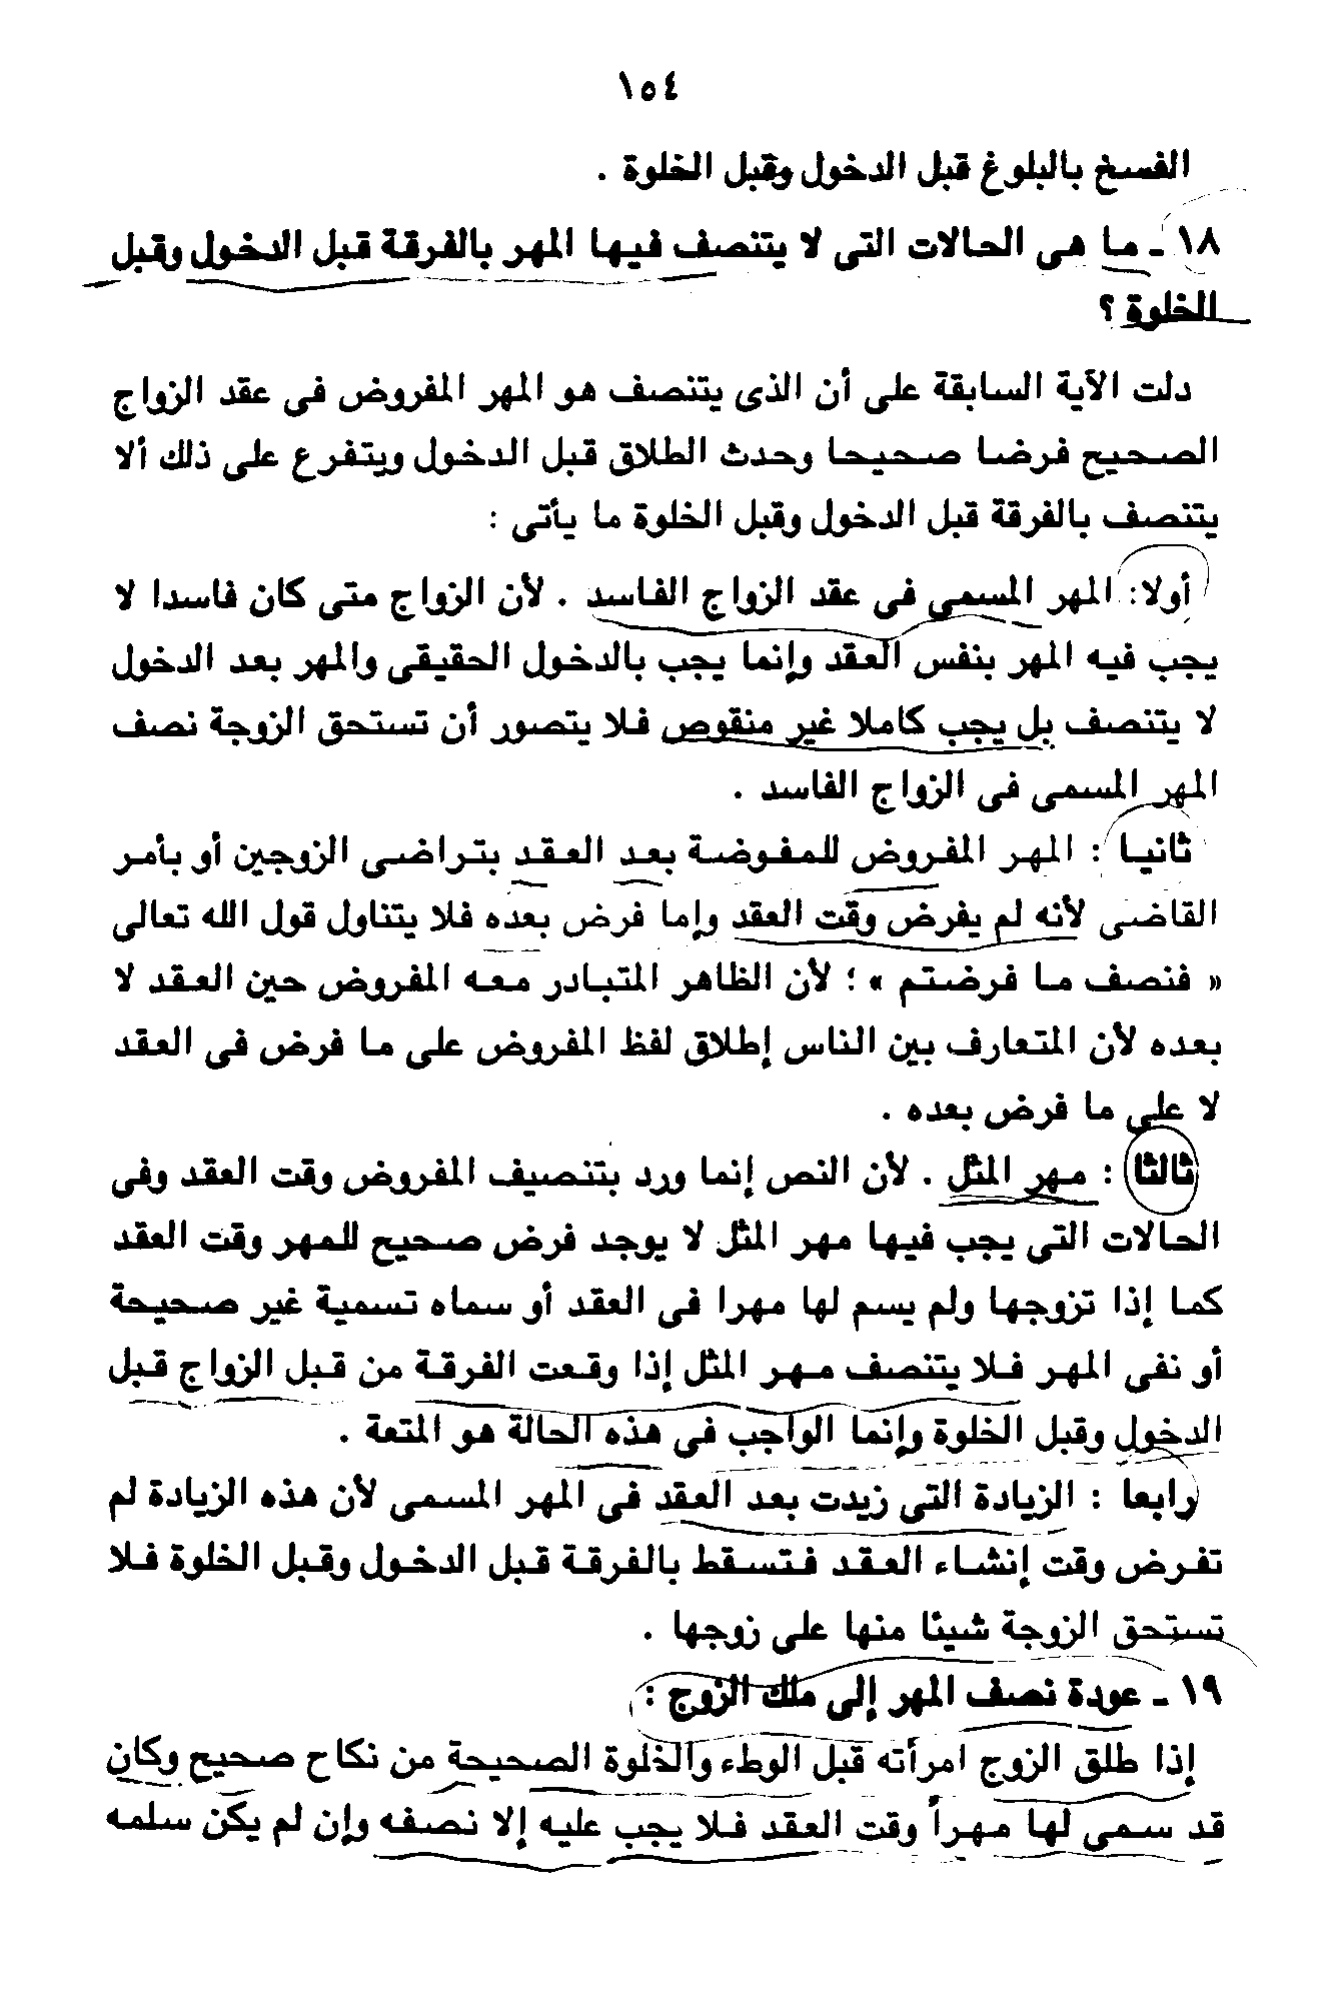 ١٥٤
الفسخ بالبلوغ قبل الدخول وقبل الخلوة .
١٨ ـ ما هى الحالات التى لا يتنصف فيها المهر بالفرقة قبل الدخول وقبل
الخلوة ؟
دلت الآية السابقة على أن الذى يتنصف هو المهر المفروض فى عقد الزواج
الصحيح فرضا صحيحا وحدث الطلاق قبل الدخول ويتفرع على ذلك ألا
يتنصف بالفرقة قبل الدخول وقبل الخلوة ما يأتى :
أولا: المهر المسمى فى عقد الزواج الفاسد . لأن الزواج متى كان فاسدا لا
يجب فيه المهر بنفس العقد وإنما يجب بالدخول الحقيقى والمهر بعد الدخول
لا يتنصف بل يجب كاملا غير منقوص فلا يتصور أن تستحق الزوجة نصف
المهر المسمى فى الزواج الفاسد .
ثانيا : المهر المفروض للمفوضة بعد العقد بتراضى الزوجين أو بأمر
القاضى لأنه لم يفرض وقت العقد وإما فرض بعده فلا يتناول قول الله تعالى
« فنصف ما فرضتم » ؛ لأن الظاهر المتبادر معه المفروض حين العقد لا
بعده لأن المتعارف بين الناس إطلاق لفظ المفروض على ما فرض فى العقد
لا على ما فرض بعده .
ثالثا : مهر المثل . لأن النص إنما ورد بتنصيف المفروض وقت العقد وفى
الحالات التى يجب فيها مهر المثل لا يوجد فرض صحيح للمهر وقت العقد
كما إذا تزوجها ولم يسم لها مهرا فى العقد أو سماه تسمية غير صحيحة
أو نفى المهر فلا يتنصف مهر المثل إذا وقعت الفرقة من قبل الزواج قبل
الدخول وقبل الخلوة وإنما الواجب فى هذه الحالة هو المتعة .
رابعا : الزيادة التى زيدت بعد العقد فى المهر المسمى لأن هذه الزيادة لم
تفرض وقت إنشاء العقد فتسقط بالفرقة قبل الدخول وقبل الخلوة فلا
تستحق الزوجة شيئا منها على زوجها .
١٩ ـ عودة نصف المهر إلى ملك الزوج :
إذا طلق الزوج امرأته قبل الوطء والخلوة الصحيحة من نكاح صحيح وكان
قد سمى لها مهراً وقت العقد فلا يجب عليه إلا نصفه وإن لم يكن سلمه